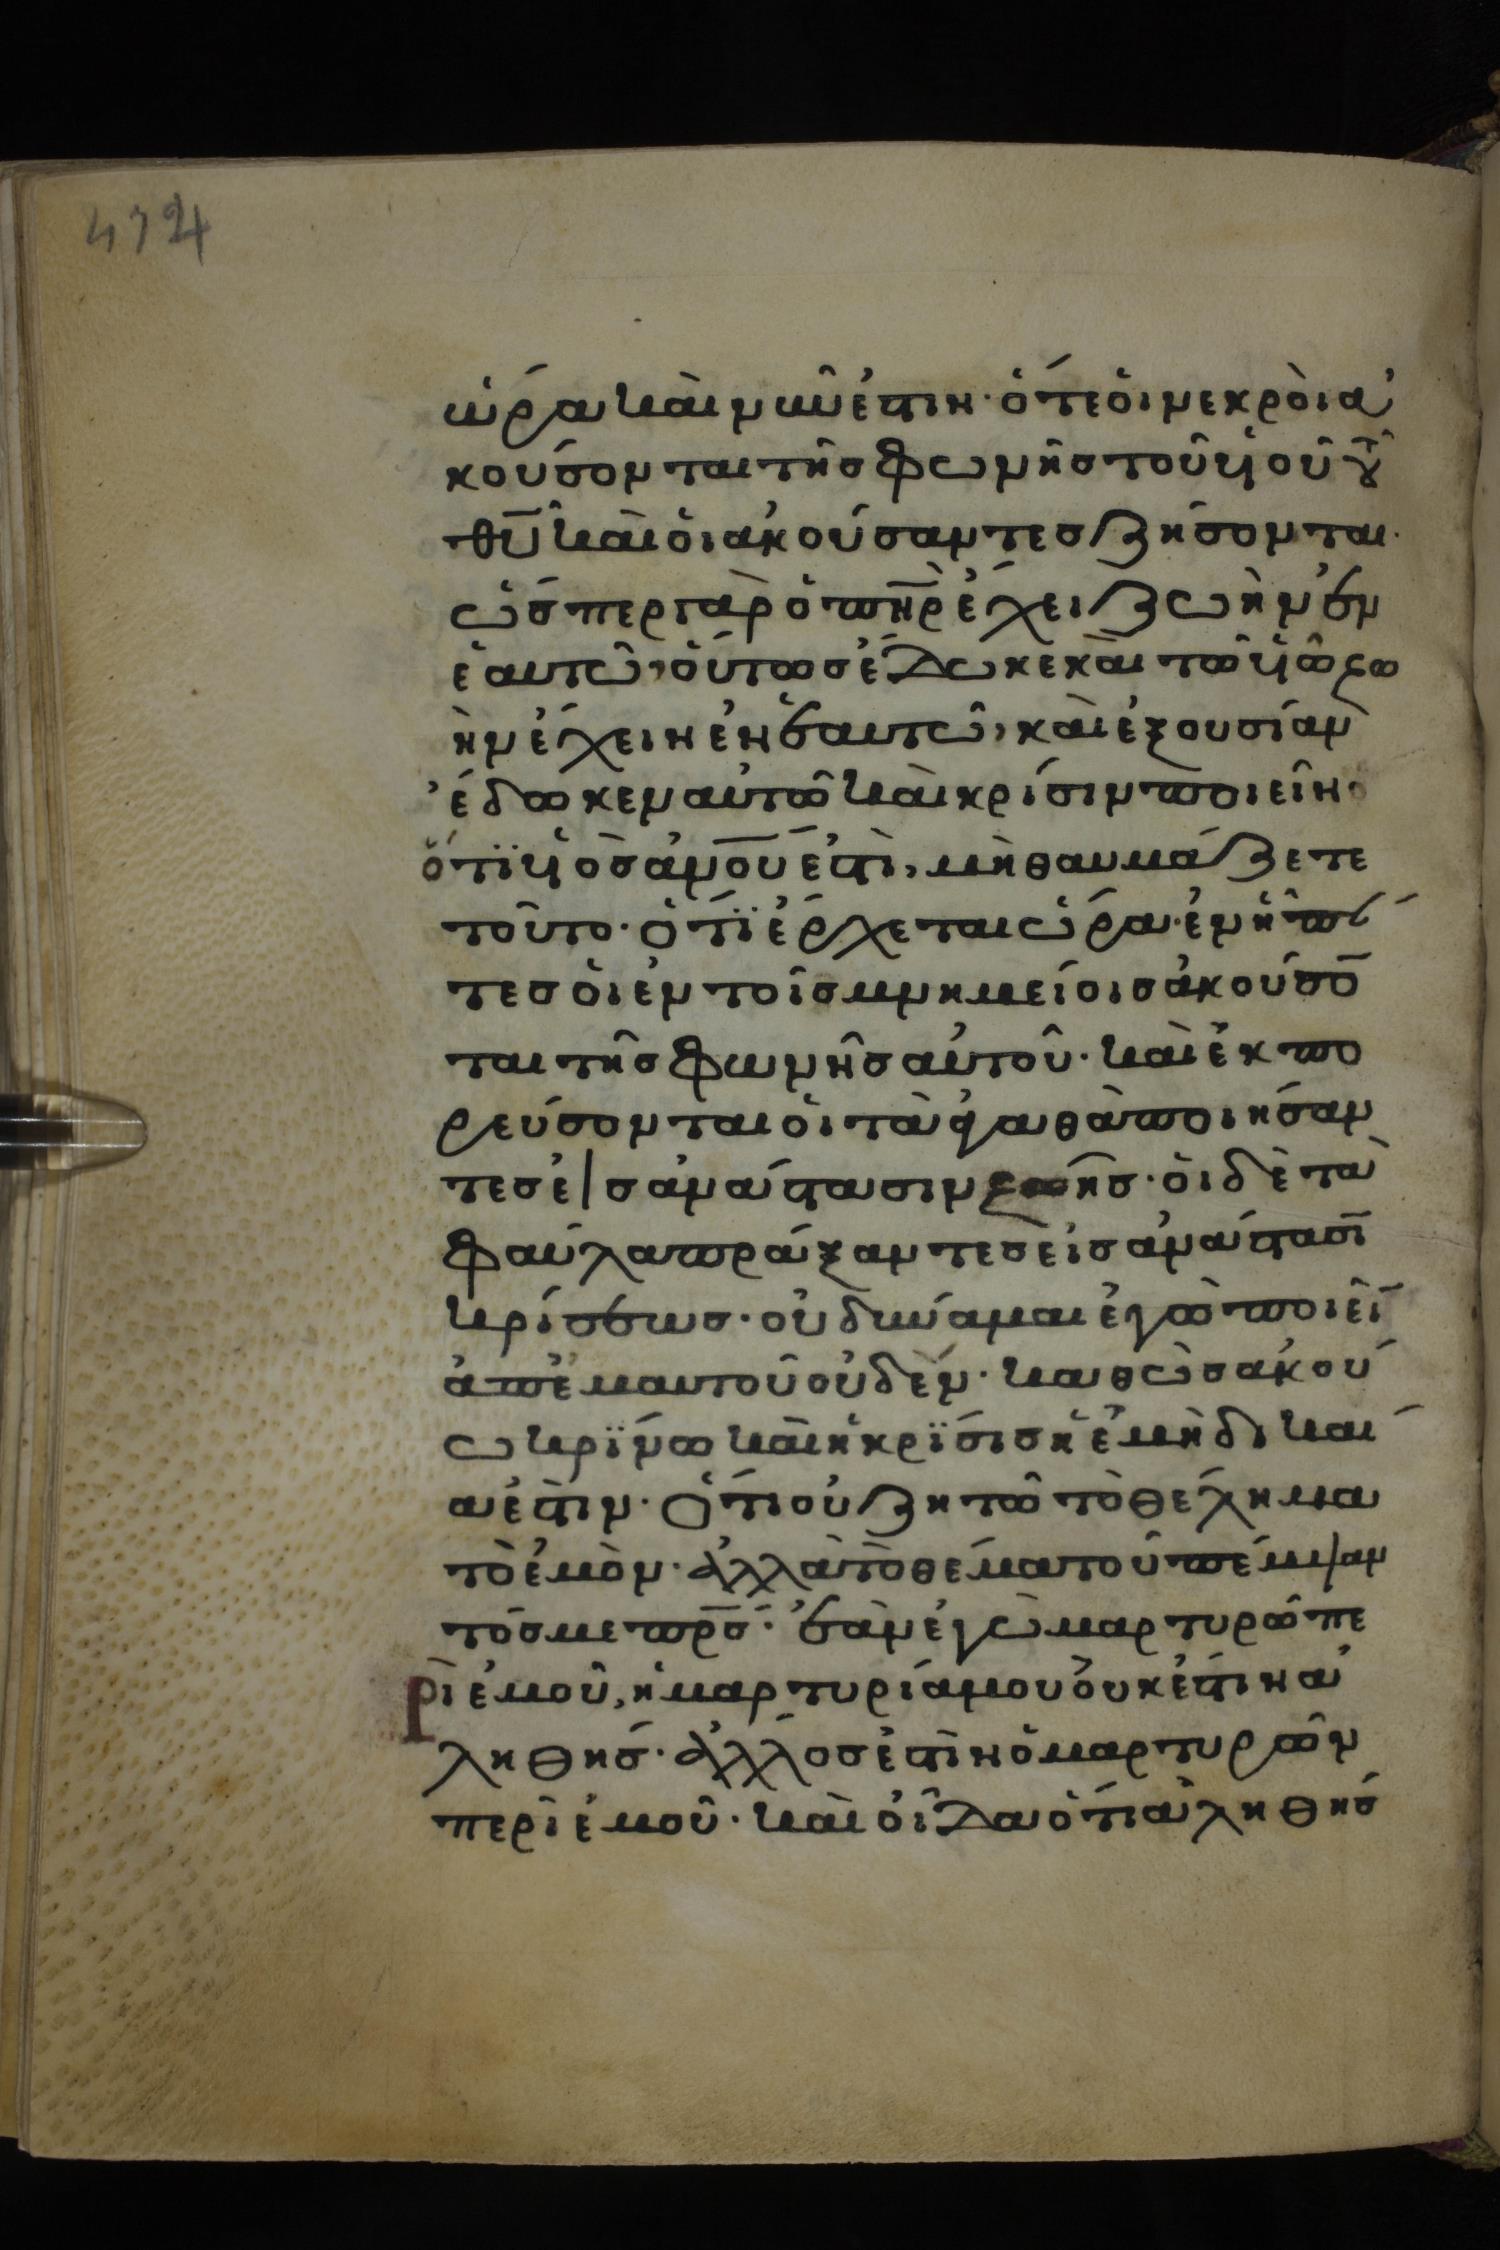 474
ὥρα καὶ νῦν ἐστιν· ὅτε οἱ νεκροὶ ἀ
κούσονται τῆς φωνῆς τοῦ υἱοῦ τοῦ
θῡ καὶ οἱ ἀκούσαντες ζήσονται·
ὥσπερ γὰρ ὁ πη̄ρ ἔχει ζωὴν ἐν
ἑαυτῶ, οὕτως ἔδωκε καὶ τῶ υἱῶ ζω
ὴν ἔχειν ἐν ἑαυτῶ, καὶ ἐξουσίαν
ἔδωκεν αὐτῶ καὶ κρίσιν ποιεῖν·
ὅτϊ υἱὸς ἀνο̄υ ἐστὶ, μὴ θαυμάζετε
τοῦτο· ὅτϊ ἔρχεται ὥρα· ἐν ἧ πάν
τες οἱ ἐν τοῖς μνημείοις ἀκούσο̄
ται τῆς φωνῆς αὐτοῦ· καὶ ἐκπο
ρεύσονται οἱ τὰ ἀγαθὰ ποιήσαν
τες εἰς ἀνάστασιν ζωῆς· οἱ δὲ τὰ
φαῦλα πράξαντες εἰς ἀνάστασῑ
κρίσεως· οὐ δύναμαι ἐγὼ ποιεῖ̄
ἀπ' ἐμαυτοῦ οὐδέν· καθὼς ἀκού
ω κρϊνω καὶ ἡ κρϊσις ἡ ἐμὴ δικαί
α ἐστιν· ὅτι οὐ ζητῶ τὸ θέλημα
τὸ ἐμὸν· ἀλλὰ τὸ θέμα τοῦ πέμψαν
τός με πρ̄ς· ἐὰν ἐγὼ μαρτυρῶ πε
ρὶ ἐμοῦ, ἡ μαρτυρία μου οὐκ ἔστιν ἀ
ληθής· ἄλλος ἐστὶν ὁ μαρτυρῶν
περὶ ἐμοῦ· καὶ οἶδα ὅτι ἀληθής